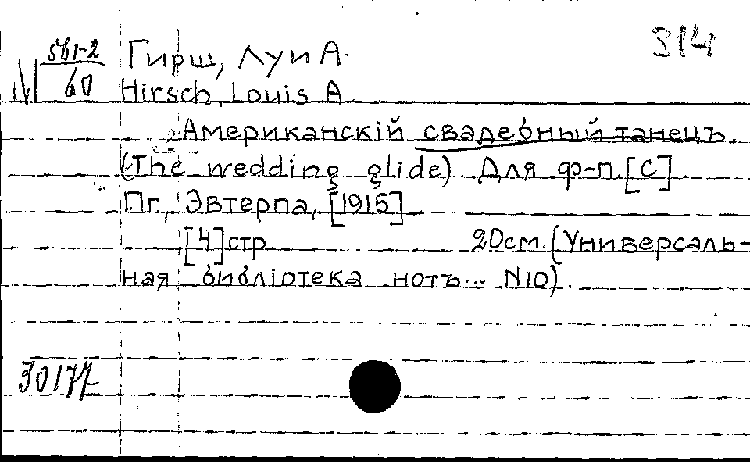 561-2 Гирш, Луи А. 314
N 60 Hirsch, Louis A
Американскій свадебный танецъ
(The wedding glide) Для ф-п. [С]
Пг., Эвтерпа, [1915]
[4] стр 20см. (Универсаль-
ная библіотека нотъ... N10)
30177